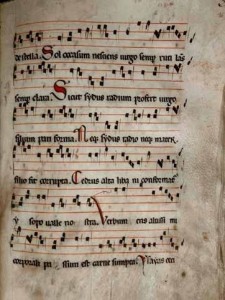 de stella. Sol occasum nesciens virgo semp ruti lās
semp clara. Sicut sydus radium profert virgo
filium pari forma. Neq sydus radio neq mater
filio fit corrupta. Cedrus alta libani conformat
ysopo valle nostra. Verbum ens altissi mi
corporali pa ssum est carne sumpta. Ysayas ceci